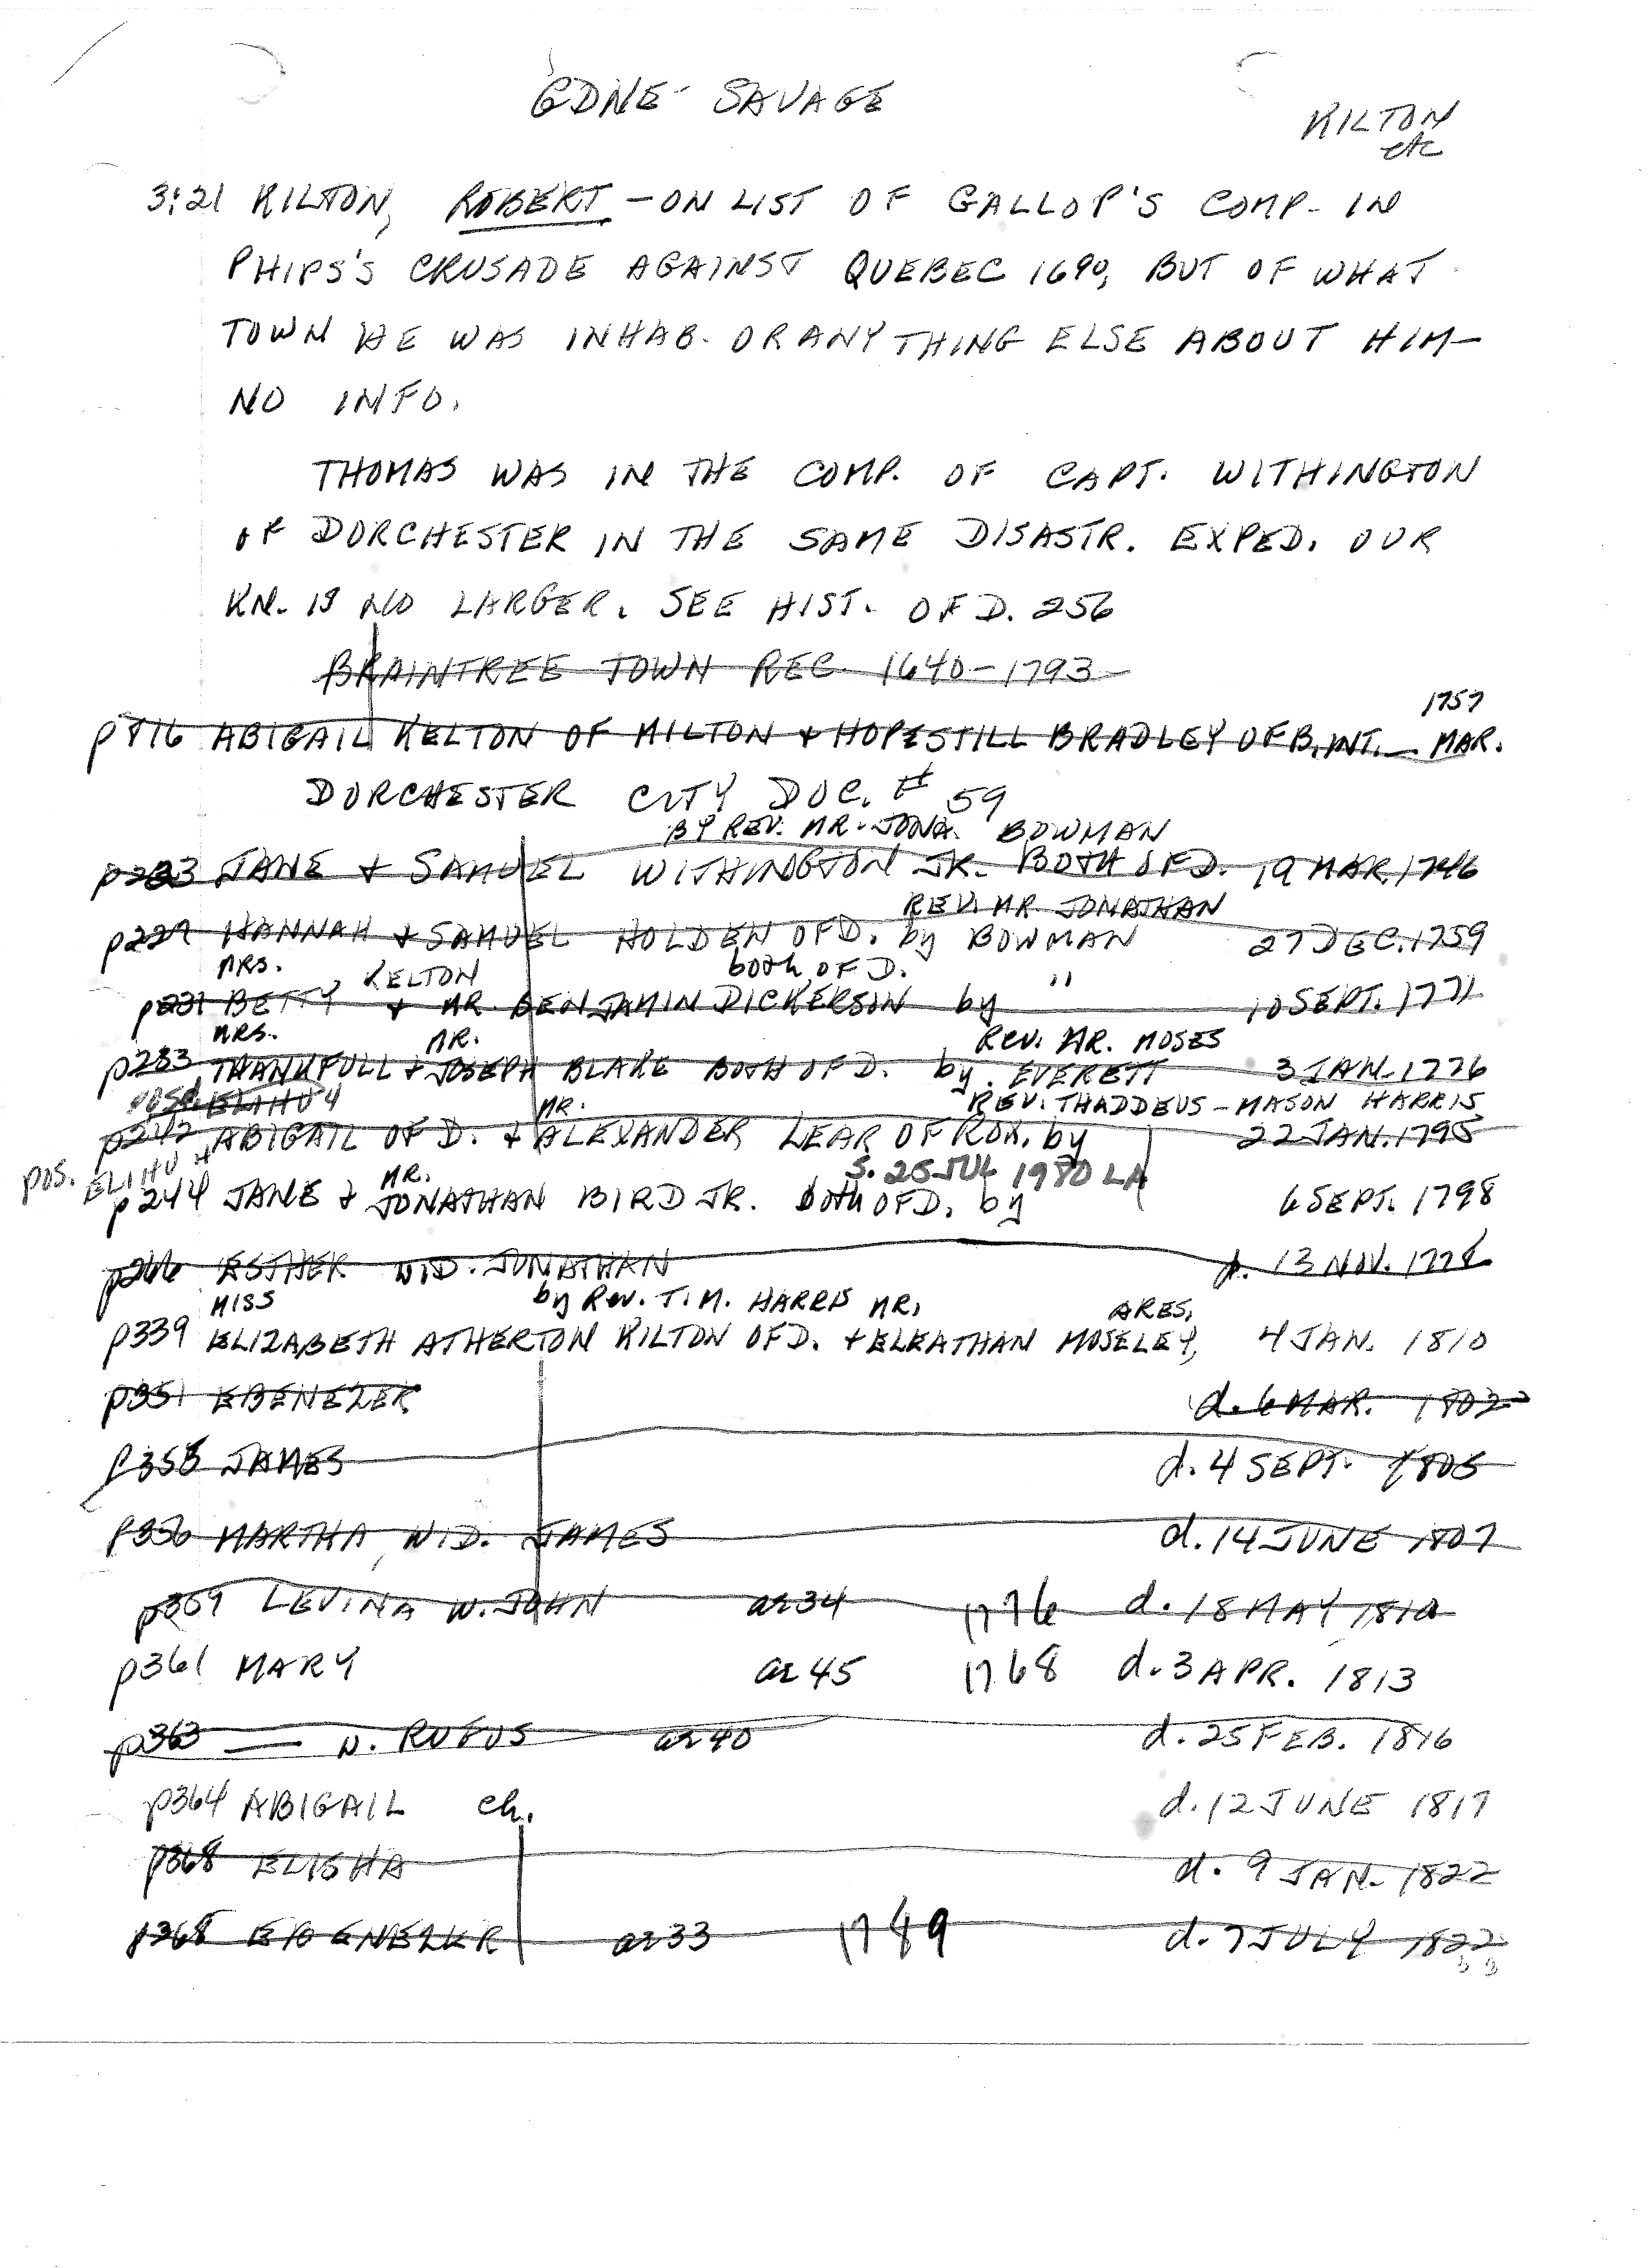 GDNE - SAVAGE
KILTON
etc
3:21 KILTON, ROBERT - ON LIST OF GALLOP'S COMP. IN
PHIPS'S CRUSADE AGAINST QUEBEC 1690, BUT OF WHAT
TOWN HE WAS INHAB. OR ANY THING ELSE ABOUT HIM -
NO INFO.
THOMAS WAS IN THE COMP. OF CAPT. WITHINGTON
OF DORCHESTER IN THE SAME DISASTR. EXPED. OUR
KN. IS NO LARGER. SEE HIST. OF D. 256
BRAINTREE TOWN REC. 1640-1793
1757
p816 ABIGAIL KELTON OF MILTON + HOPESTILL BRADLEY OF B. INT. - MAR.
DORCHESTER CITY DOC. # 59
BY REV. MR. JONA. BOWMAN
p223 JANE + SAMUEL WITHINGTON JR. BOTH OF D. 19 MAR. 1746
REV. MR. JONATHAN
p227 HANNAH + SAMUEL HOLDEN OF D. by BOWMAN 27 DEC. 1759
MRS. KELTON both OF D.
p231 BETTY + MR. BENJAMIN DICKERSON by " 10 SEPT. 1771
MRS. MR. REV. MR. MOSES
p233 THANKFULL + JOSEPH BLAKE BOTH OF D. by EVERETT 3 JAN. 1776
POS. ELIHU 4 MR. REV. THADDEUS-MASON HARRIS
p242 ABIGAIL OF D. + ALEXANDER LEAR OF ROX. by 22 JAN. 1795
pos. ELIHU 4 MR. S. 25 JUL 1980 LA
p244 JANE + JONATHAN BIRD JR. both OF D. by 6 SEPT. 1798
p266 ESTHER WID. JONATHAN d. 13 NOV. 1778
MISS by Rev. T. M. HARRIS MR. ARES,
p339 ELIZABETH ATHERTON KILTON OF D. + ELEATHAN MOSELEY, 4 JAN. 1810
p351 EBENEZER d. 6 MAR. 1802
p355 JAMES d. 4 SEPT. 1805
p356 MARTHA, WID. JAMES d. 14 JUNE 1807
p359 LEVINA W. JOHN ae 34 1776 d. 18 MAY 1810
p361 MARY ae 45 1768 d. 3 APR. 1813
p363 — W. RUFUS ae 40 d. 25 FEB. 1816
p364 ABIGAIL ch. d. 12 JUNE 1817
p368 ELISHA d. 9 JAN. 1822
p368 EBENEZER ae 33 1789 d. 7 JULY 1822
3 3